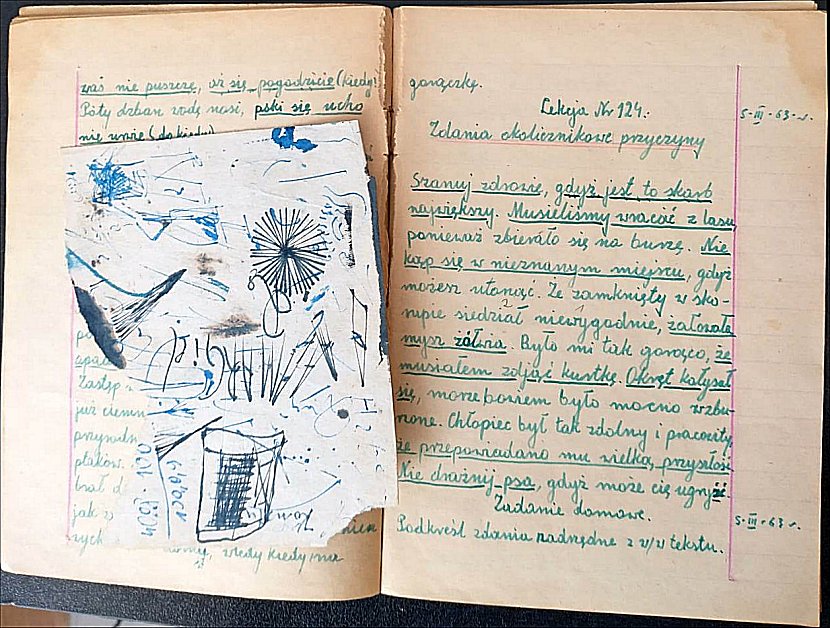 was nie puszczę, aż się pogodzicie (kiedy?
Póty dzban wodę nosi, póki się ucho
nie urwie (dokiedy)
Zastęp
już ciemn
przywodn
ptaków.
brał d
jak z
nych
wtedy kiedy ma
MARGiel
gorączkę.
Lekcja Nr 124.
5.III.63.r.
Zdania okolicznikowe przyczyny
Szanuj zdrowie, gdyż jest to skarb
największy. Musieliśmy wracać z lasu,
ponieważ zbierało się na burzę. Nie
kąp się w nieznanym miejscu, gdyż
możesz utonąć. Że zamknięty w sko-
rupie siedział niewygodnie, żałowała
mysz żółwia. Było mi tak gorąco, że
musiałem zdjąć kurtkę. Okręt kołysał
się, morze bowiem było mocno wzbu-
rzone. Chłopiec był tak zdolny i pracowity,
że przepowiadano mu wielką przyszłość.
Nie drażnij psa, gdyż może cię ugryźć.
Zadanie domowe.
5.III.63 r.
Podkreśl zdania nadrzędne z w/w tekstu.